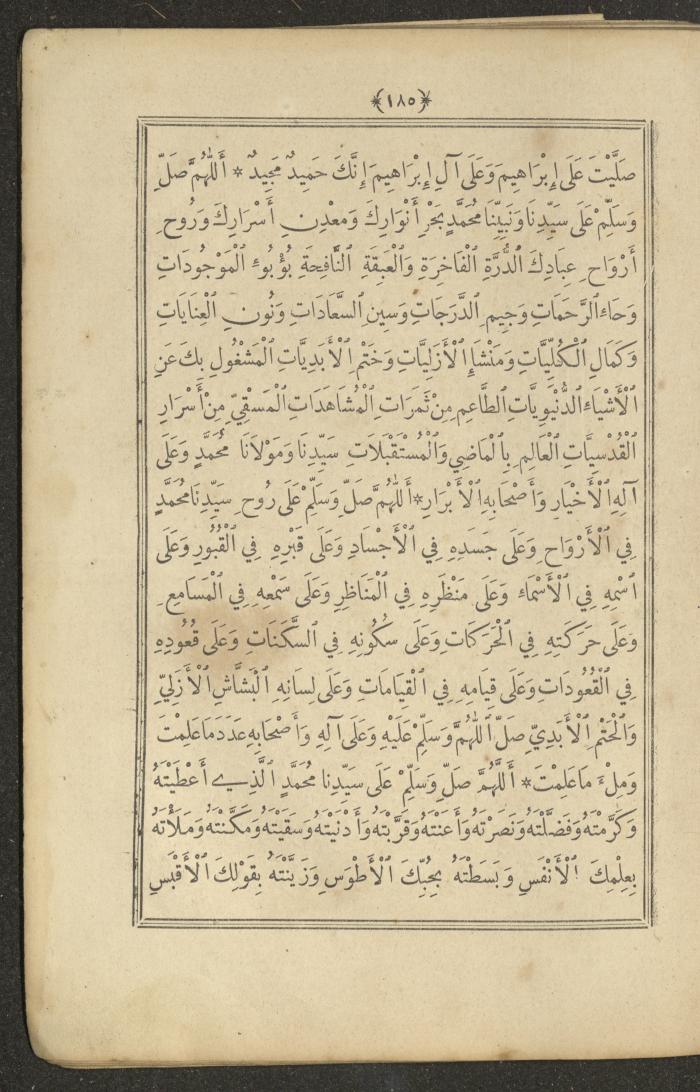 ﴿١٨٥﴾
صَلَّيْتَ عَلَى إِبْرَاهِيمَ وَعَلَى آلِ إِبْرَاهِيمَ إِنَّكَ حَمِيدٌ مَجِيدٌ * أَللّٰهُمَّ صَلِّ
وَسَلِّمْ عَلَى سَيِّدِنَا وَنَبِيِّنَا مُحَمَّدٍ بَحْرِ أَنْوَارِكَ وَمَعْدِنِ أَسْرَارِكَ وَرُوحِ
أَرْوَاحِ عِبَادِكَ ٱلدُّرَّةِ ٱلْفَاخِرَةِ وَٱلْعَبِقَةِ ٱلنَّافِحَةِ بُؤْبُوءِ ٱلْمَوْجُودَاتِ
وَحَاءِ ٱلرَّحَمَاتِ وَجِيمِ ٱلدَّرَجَاتِ وَسِينِ ٱلسَّعَادَاتِ وَنُونِ ٱلْعِنَايَاتِ
وَكَمَالِ ٱلْكُلِّيَّاتِ وَمَنْشَإِ ٱلْأَزَلِيَّاتِ وَخَتْمِ ٱلْأَبَدِيَّاتِ ٱلْمَشْغُولِ بِكَ عَنِ
ٱلْأَشْيَاءِ ٱلدُّنْيَوِيَّاتِ ٱلطَّاعِمِ مِنْ ثَمَرَاتِ ٱلْمُشَاهَدَاتِ ٱلْمَسْقِيِّ مِنْ أَسْرَارِ
ٱلْقُدْسِيَّاتِ ٱلْعَالِمِ بِالْمَاضِي وَٱلْمُسْتَقْبَلَاتِ سَيِّدِنَا وَمَوْلَانَا مُحَمَّدٍ وَعَلَى
آلِهِ ٱلْأَخْيَارِ وَأَصْحَابِهِ ٱلْأَبْرَارِ * أَللّٰهُمَّ صَلِّ وَسَلِّمْ عَلَى رُوحِ سَيِّدِنَا مُحَمَّدٍ
فِي ٱلْأَرْوَاحِ وَعَلَى جَسَدِهِ فِي ٱلْأَجْسَادِ وَعَلَى قَبْرِهِ فِي ٱلْقُبُورِ وَعَلَى
ٱسْمِهِ فِي ٱلْأَسْمَاءِ وَعَلَى مَنْظَرِهِ فِي ٱلْمَنَاظِرِ وَعَلَى سَمْعِهِ فِي ٱلْمَسَامِعِ
وَعَلَى حَرَكَتِهِ فِي ٱلْحَرَكَاتِ وَعَلَى سُكُونِهِ فِي ٱلسَّكَنَاتِ وَعَلَى قُعُودِهِ
فِي ٱلْقُعُودَاتِ وَعَلَى قِيَامِهِ فِي ٱلْقِيَامَاتِ وَعَلَى لِسَانِهِ ٱلْبَشَّاشِ ٱلْأَزَلِيِّ
وَٱلْخَتْمِ ٱلْأَبَدِيِّ صَلِّ ٱللّٰهُمَّ وَسَلِّمْ عَلَيْهِ وَعَلَى آلِهِ وَأَصْحَابِهِ عَدَدَ مَا عَلِمْتَ
وَمِلْءَ مَا عَلِمْتَ * أَللّٰهُمَّ صَلِّ وَسَلِّمْ عَلَى سَيِّدِنَا مُحَمَّدٍ ٱلَّذِي أَعْطَيْتَهُ
وَكَرَّمْتَهُ وَفَضَّلْتَهُ وَنَصَرْتَهُ وَأَعَنْتَهُ وَقَرَّبْتَهُ وَأَدْنَيْتَهُ وَسَقَيْتَهُ وَمَكَّنْتَهُ وَمَلَأْتَهُ
بِعِلْمِكَ ٱلْأَنْفَسِ وَبَسَطْتَهُ بِحُبِّكَ ٱلْأَطْوَسِ وَزَيَّنْتَهُ بِقَوْلِكَ ٱلْأَقْبَسِ